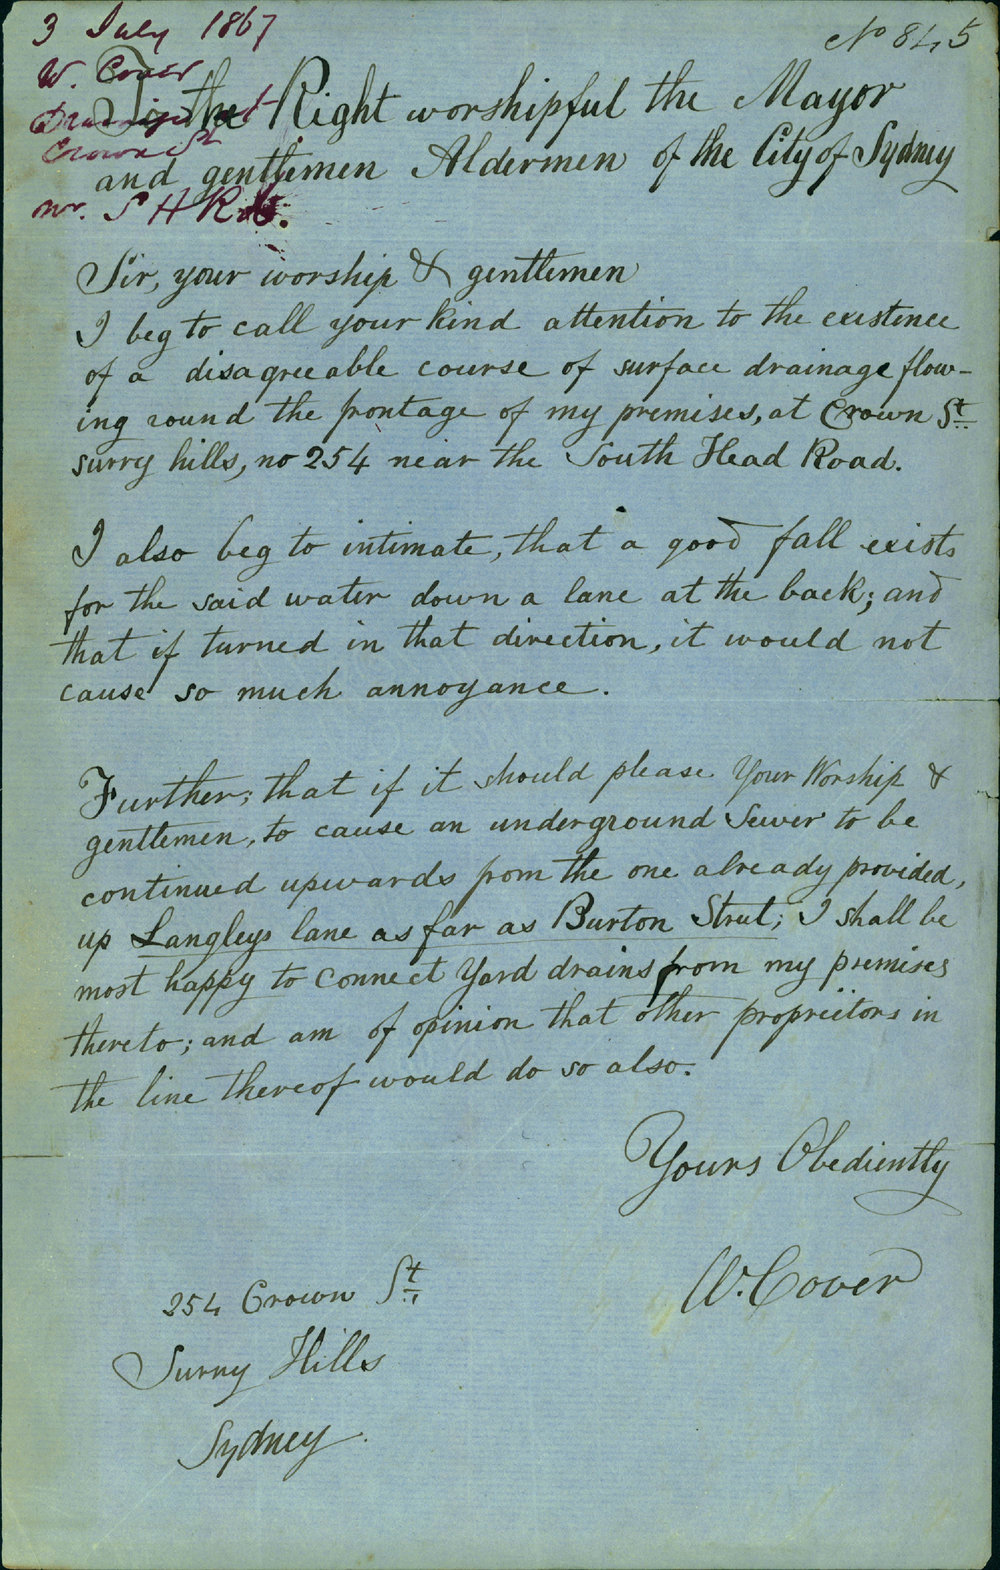 3 July 1867
No 845
W. Cover
Drainage
Crown St
nr. S H Rd.
To the Right worshipful the Mayor
and gentlemen Aldermen of the City of Sydney
Sir, your worship & gentlemen
I beg to call your kind attention to the existence
of a disagreeable course of surface drainage flow-
ing round the frontage of my premises, at Crown St.
surry hills, no 254 near the South Head Road.
I also beg to intimate, that a good fall exists
for the said water down a lane at the back; and
that if turned in that direction, it would not
cause so much annoyance.
Further; that if it should please Your Worship &
gentlemen, to cause an underground Sewer to be
continued upwards from the one already provided,
up Langleys lane as far as Burton Street; I shall be
most happy to connect Yard drains from my premises
thereto; and am of opinion that other proprietors in
the line thereof would do so also.
Yours Obediently
W. Cover
254 Crown St.
Surry Hills
Sydney.